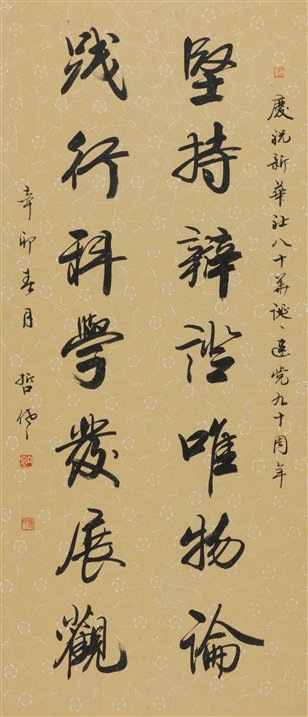 慶祝新華社八十華誕、建党九十周年
堅持辯證唯物論
践行科學發展觀
辛卯春月 哲